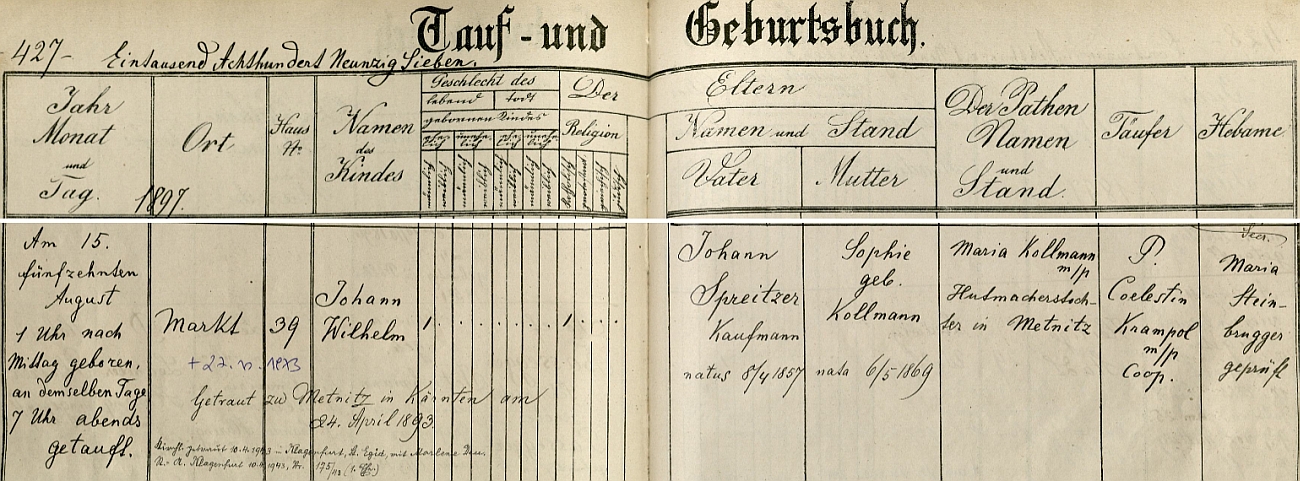 Tauf - und Geburtsbuch.
427- Eintausend Achthundert Neunzig Sieben.
Jahr
Monat
und
Tag.
1897.
Ort
Haus
Nr.
Namen
des
Kindes
Geschlecht des
lebend todt
gebornen Kindes
männlich weiblich männlich weiblich männlich weiblich männlich weiblich
Der
Religion
katholisch
Eltern
Namen und Stand
Vater Mutter
Der Pathen
Namen
und
Stand.
Täufer
Hebame
Am 15.
fünfzehnten
August
1 Uhr nach
Mittag geboren,
an demselben Tage
7 Uhr abends
getauft.
Markt
39
Johann
Wilhelm
1 . . . . . . . . 1 . . .
Johann
Spreitzer
Kaufmann
natus 8/4 1857
Sophie
geb.
Kollmann
nata 6/5 1869
Maria Kollmann
m/p
Hutmacherstoch-
ter in Metnitz
P.
Coelestin
Krampol
m/p
Coop.
Maria
Stein-
brugger
geprüft
Getraut zu Metnitz in Kärnten am
24. April 1893.
Kirchl. getraut 10.4.1943 in Klagenfurt, St. Egid, mit Marlene
St. A. Klagenfurt 10.4.1943, Nr. 175/